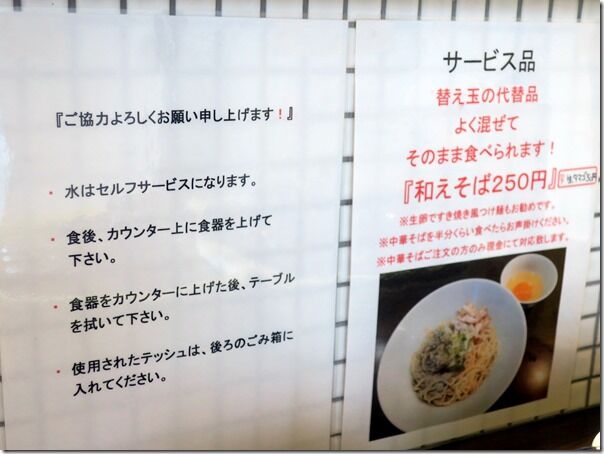 『ご協力よろしくお願い申し上げます！』
・ 水はセルフサービスになります。
・ 食後、カウンター上に食器を上げて
下さい。
・ 食器をカウンターに上げた後、テーブル
を拭いて下さい。
・ 使用されたテッシュは、後ろのごみ箱に
入れてください。
サービス品
替え玉の代替品
よく混ぜて
そのまま食べられます！
『和えそば250円』
※生卵ですき焼き風つけ麺もお勧めです。
※中華そばを半分くらい食べたらお声掛けください。
※中華そばご注文の方のみ現金にて対応致します。